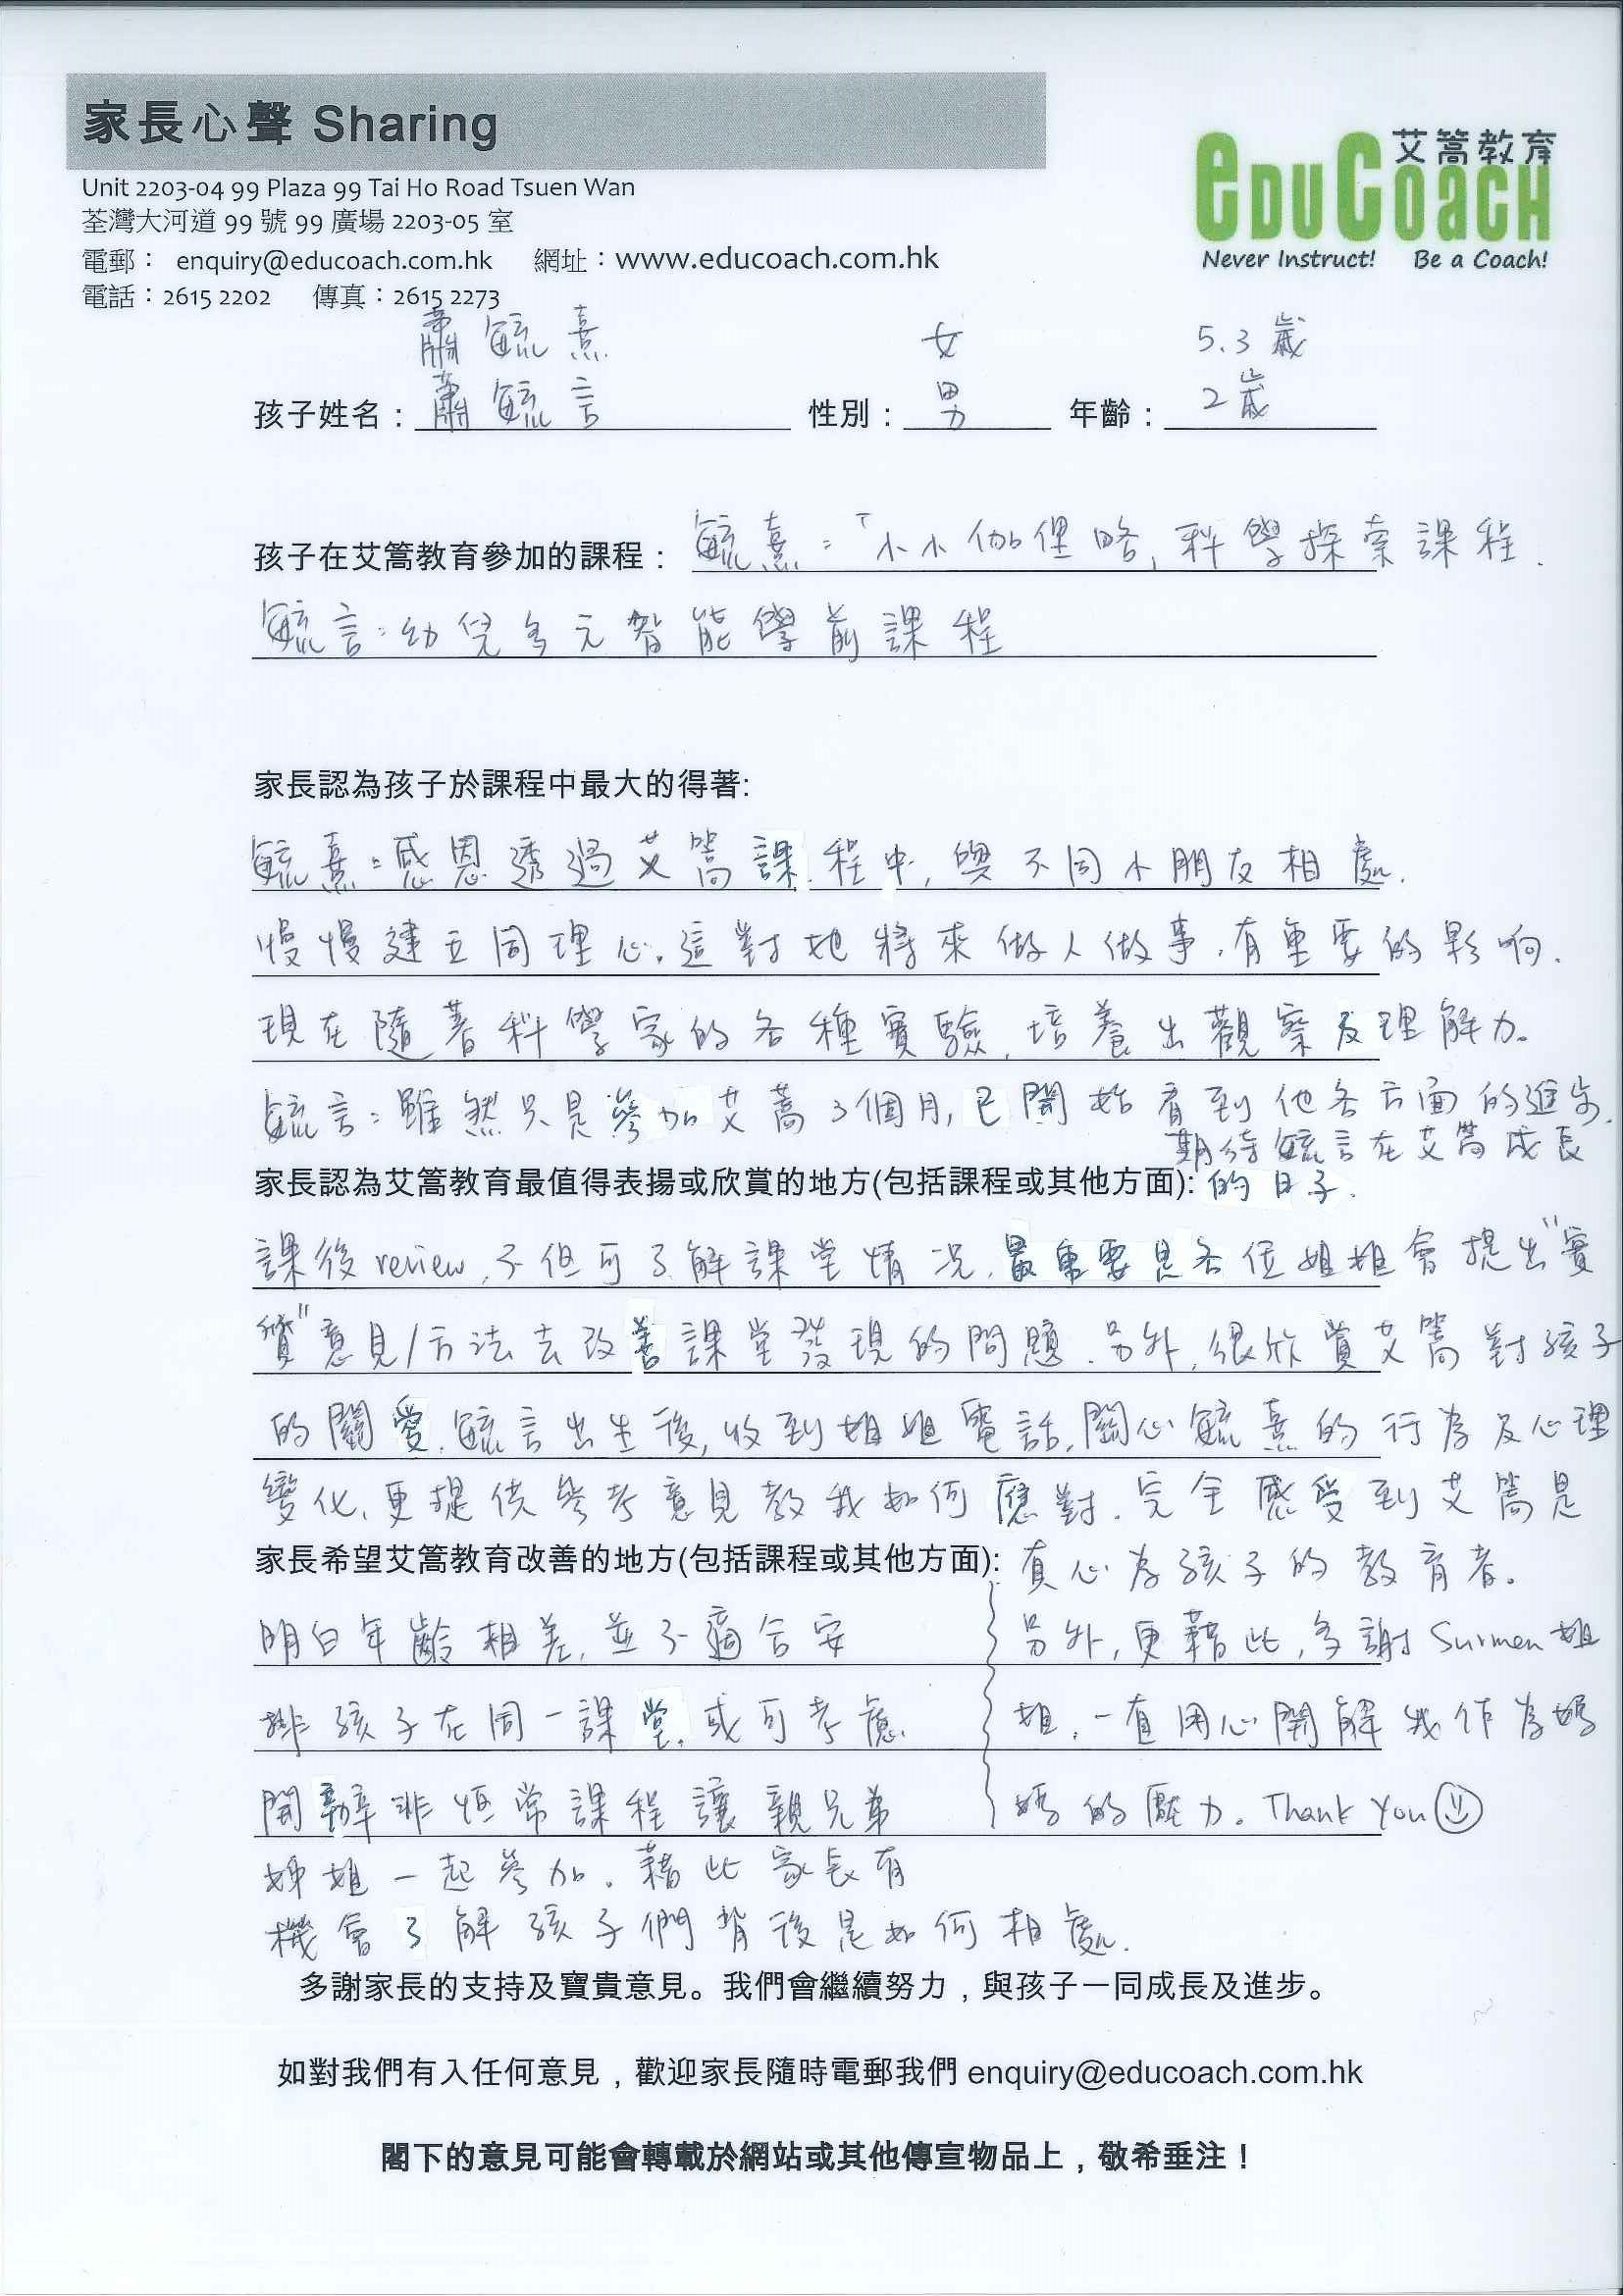 家長心聲 Sharing
艾篙教育
eDUCOACH
Never Instruct! Be a Coach!
Unit 2203-04 99 Plaza 99 Tai Ho Road Tsuen Wan
荃灣大河道 99 號 99 廣場 2203-05 室
電郵： enquiry@educoach.com.hk 網址：www.educoach.com.hk
電話：2615 2202 傳真：2615 2273
蕭毓熹 女 5.3歲
孩子姓名：蕭毓言 性別：男 年齡：2歲
孩子在艾篙教育參加的課程：毓熹:「小小伽俚略, 科學探索課程.
毓言:幼兒多元智能學前課程
家長認為孩子於課程中最大的得著:
毓熹:感恩透過艾篙課程中, 與不同小朋友相處.
慢慢建立同理心。這對她將來做人做事, 有重要的影响.
現在隨著科學家的各種實驗, 培養出觀察及理解力。
毓言:雖然只是參加艾蒿3個月, 已開始看到他各方面的進步.
期待毓言在艾篙成長
家長認為艾篙教育最值得表揚或欣賞的地方(包括課程或其他方面): 的日子.
課後review, 不但可了解課堂情况, 最重要是各位姐姐會提出"實
質"意見/方法去改善課堂發現的問題. 另外, 很欣賞艾篙對孩子
的關愛. 毓言出生後, 收到姐姐電話, 關心毓熹的行為及心理
變化, 更提供參考意見教我如何應對. 完全感受到艾篙是
家長希望艾篙教育改善的地方(包括課程或其他方面): 真心為孩子的教育者。
明白年齡相差, 並不適合安 另外, 更藉此, 多謝 Surmen 姐
排孩子在同一課堂, 或可考慮 姐, 一直用心開解我作為媽
開辦非恒常課程讓親兄弟 媽的壓力。Thank You
姊姐一起參加。藉此家長有
機會了解孩子們背後是如何相處.
多謝家長的支持及寶貴意見。我們會繼續努力，與孩子一同成長及進步。
如對我們有入任何意見，歡迎家長隨時電郵我們 enquiry@educoach.com.hk
閣下的意見可能會轉載於網站或其他傳宣物品上，敬希垂注！